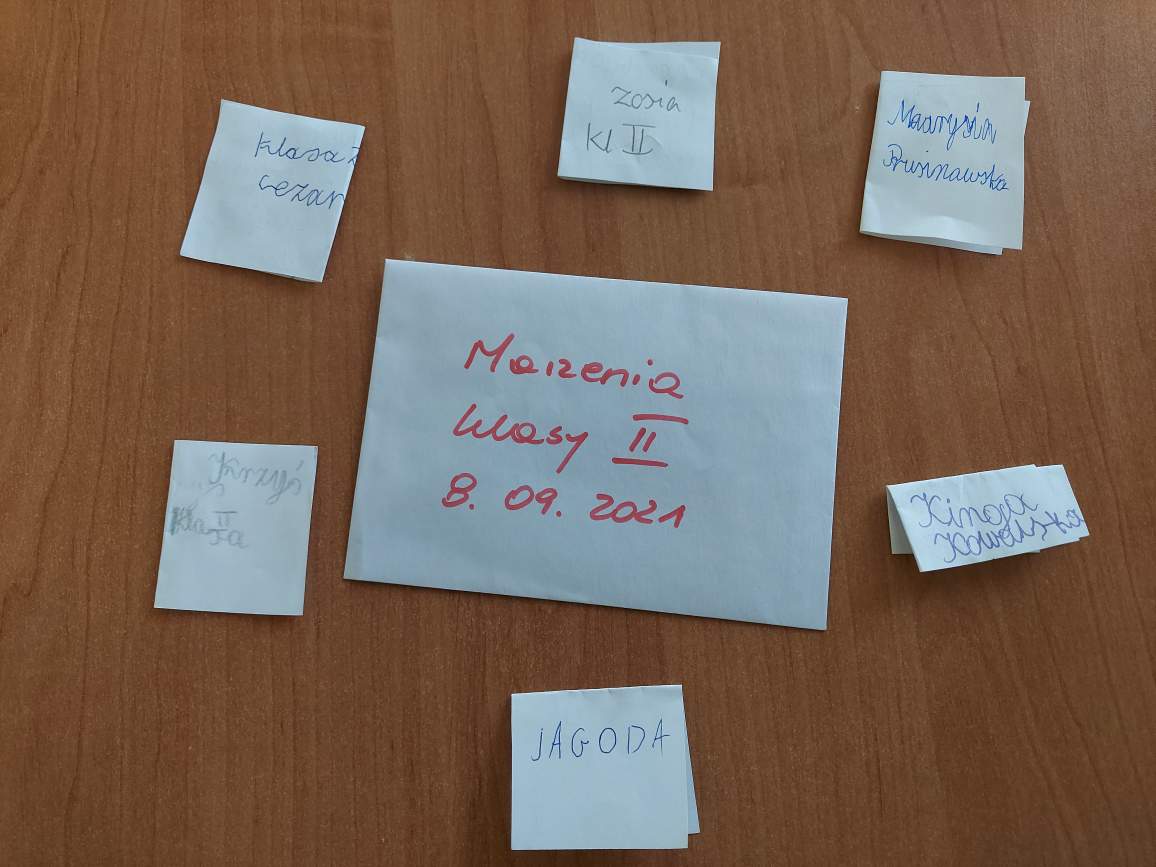 Zosia
Kl II
Klasa 2
cezar
Maarysia
Rusinawska
Marzenia
klasy II
8. 09. 2021
Krzyś
II
Klasa
Kinga
Kowalska
JAGODA